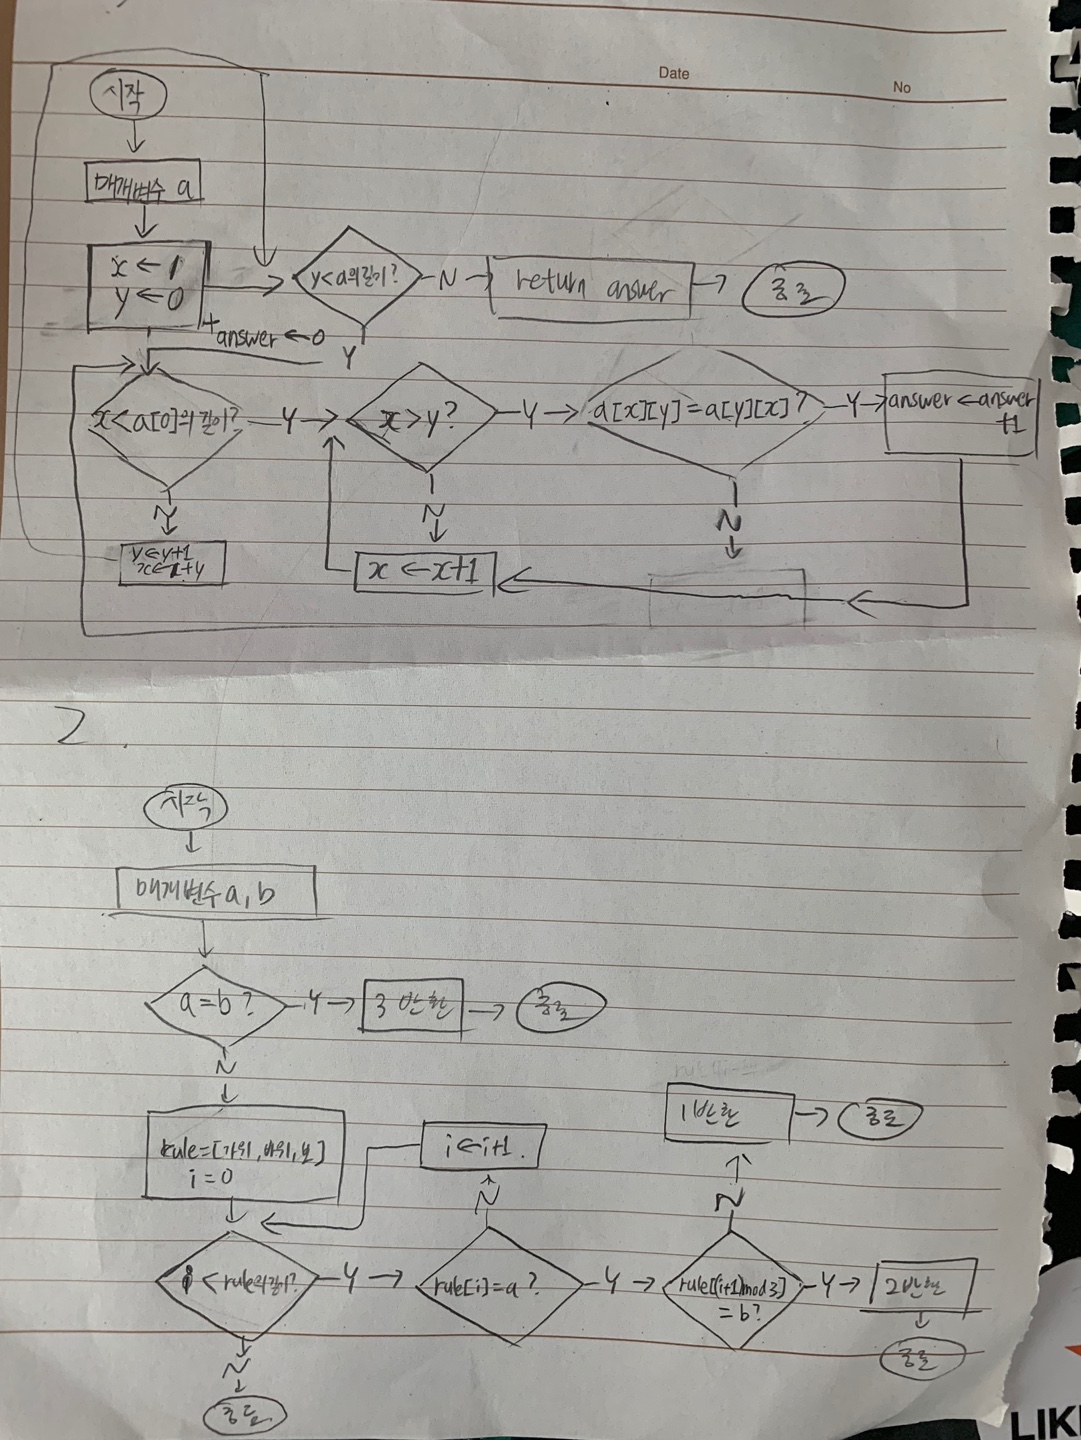 Date
No
시작
매개변수 a
x ← 1
y ← 0
+ answer ← 0
y < a의 길이?
N
return answer
종료
Y
x < a[0]의 길이?
Y
x > y?
Y
a[x][y] = a[y][x]?
Y
answer ← answer
+1
N
N
N
y ← y+1
x ← 1+y
x ← x+1
2.
시작
매개변수 a, b
a = b?
Y
3 반환
종료
N
rule = [가위, 바위, 보]
i = 0
i ← i+1.
1 반환
종료
N
N
i < rule의 길이?
Y
rule[i] = a?
Y
rule[(i+1) mod 3]
= b?
Y
2 반환
종료
N
종료
LIK